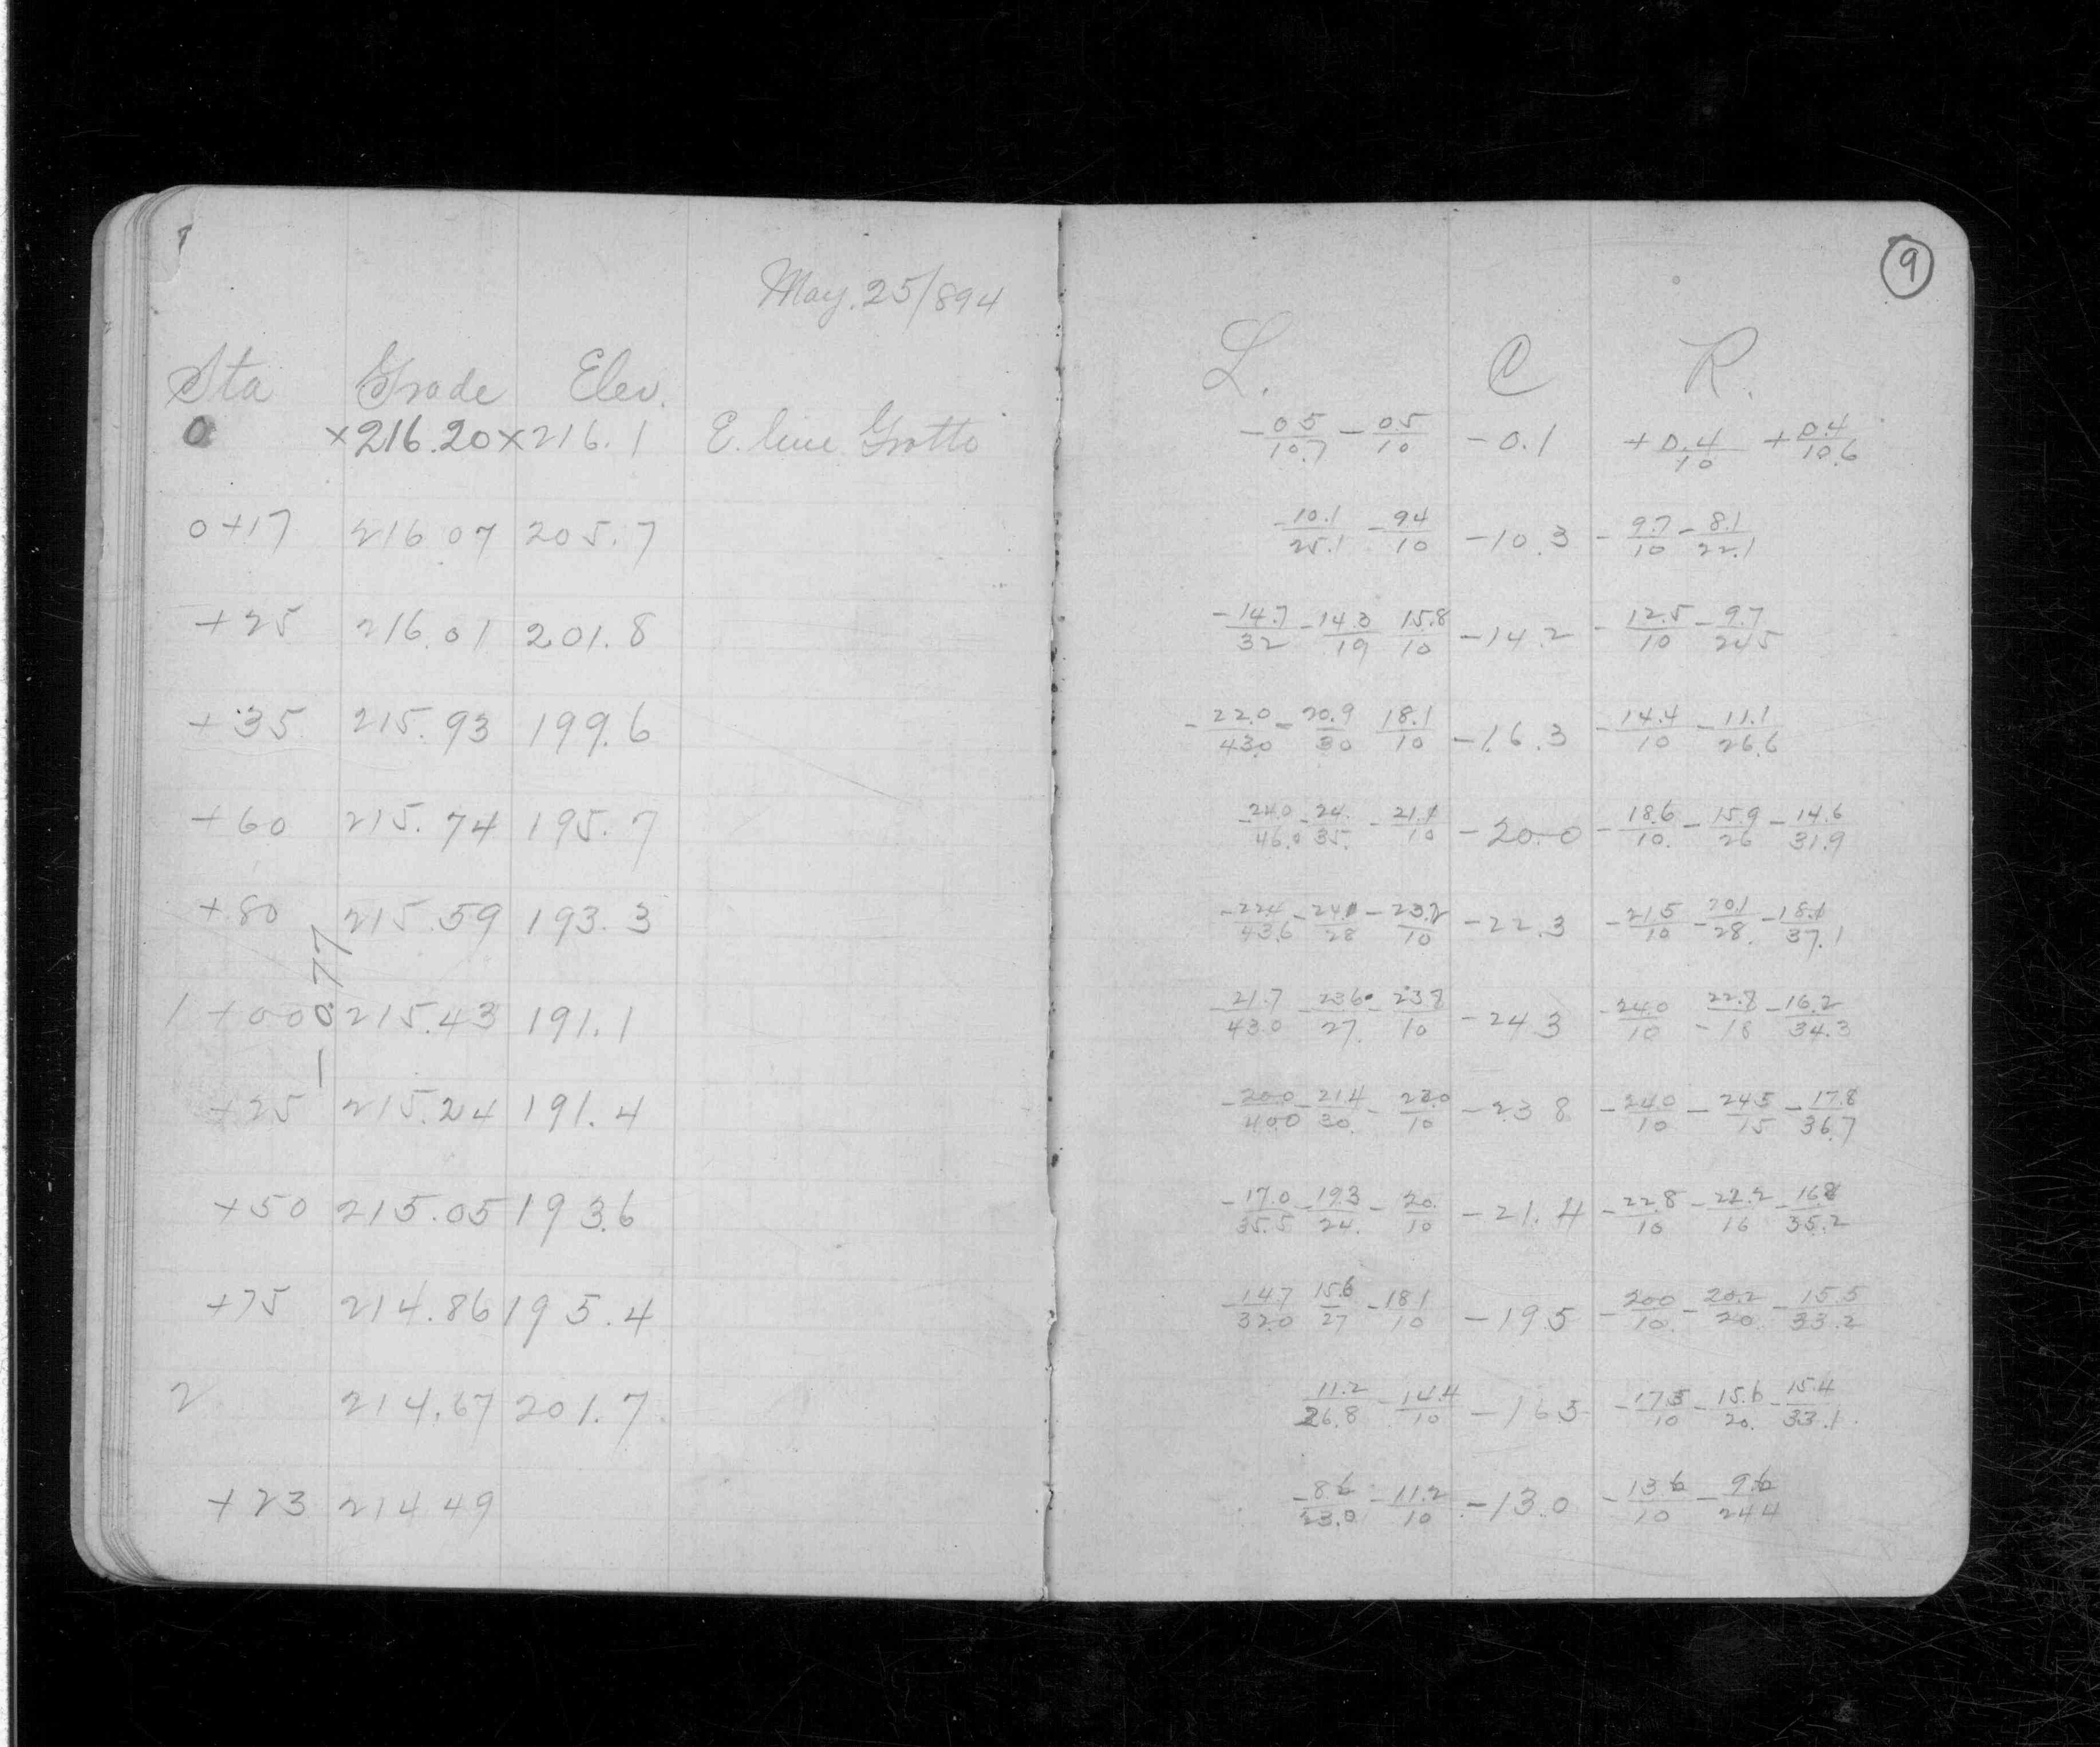 May. 25/894
Sta Grade Elev.
0 ×216.20 ×216.1 E. line Grotto
0+17 216 07 205.7
+25 216.01 201.8
+35 215.93 199.6
+60 215.74 195.7
+80 215.59 193.3
1+00 215.43 191.1
+25 215.24 191.4
+50 215.05 193.6
+75 214.86 195.4
2 214.67 201.7
+23 214 49
— 0.77
9
L. C R.
-05/10.7 -05/10 -0.1 +0.4/10 +0.4/10.6
-10.1/25.1 -94/10 -10.3 -9.7/10 -8.1/22.1
-14.7/32 -14.3/19 15.8/10 -14.2 -12.5/10 -9.7/245
-22.0/430 -20.9/30 18.1/10 -16.3 -14.4/10 -11.1/26.6
-24.0/46.0 -24./35. -21.1/10 -20.0 -18.6/10. -15.9/26 -14.6/31.9
-224/43.6 -24.0/28 -23.2/10 -22.3 -215/10 -20.1/28. -18.1/37.1
-21.7/43.0 -236/27. -238/10 -243 -240/10 -22.8/18 -16.2/34.3
-200/400 -214/30. -22.0/10 -238 -240/10 -245/15 -17.8/36.7
-17.0/35.5 -193/24. -20./10 -21.4 -22.8/10 -22.2/16 -168/35.2
-147/320 15.6/27 -181/10 -195 -200/10. -20.2/20. -15.5/33.2
11.2/26.8 -14.4/10 -165 -175/10 -15.6/20. -15.4/33.1
-86/23.0 -11.2/10 -13.0 -136/10 -9.6/244